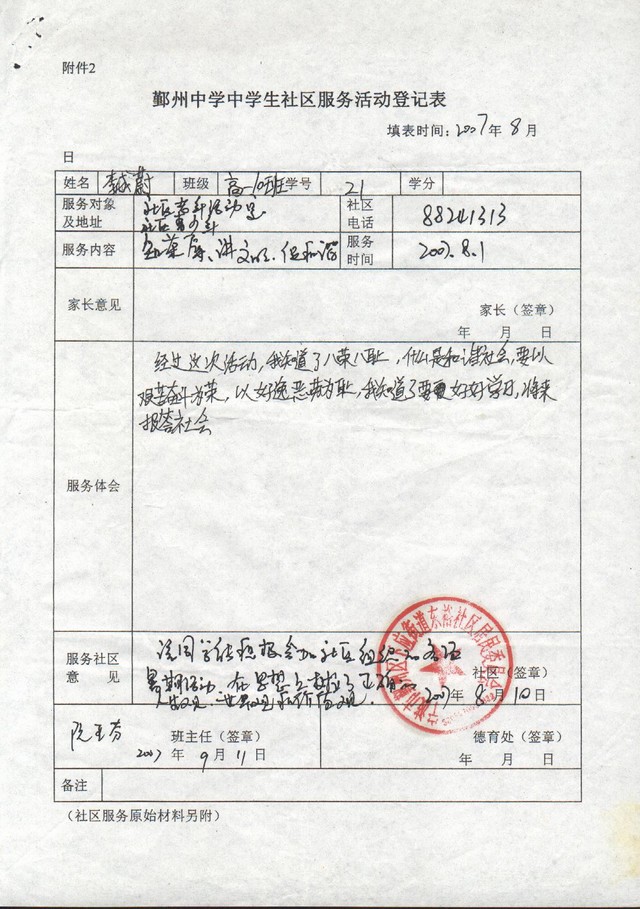 附件2
鄞州中学中学生社区服务活动登记表
填表时间:2007年8月
日
姓名 李成蔚 班级 高一10班 学号 21 学分
服务对象及地址 社区青少年活动室 社区青少年 社区电话 88241313
服务内容 知荣辱、讲文明、促和谐 服务时间 2007.8.1
家长意见
家长(签章)
年 月 日
服务体会
经过这次活动,我知道了八荣八耻,什么是和谐社会,要以
艰苦奋斗为荣,以好逸恶劳为耻,我知道了要更好好学习,将来
报答社会
服务社区意见
该同学能积极参加社区组织的各项
暑期活动,在思想上树立了正确的
人生观、世界观和价值观.
社区(签章)
2007年8月10日
下应街道东裕社区居民委员会
班主任(签章)
2007年9月11日
德育处(签章)
年 月 日
备注
(社区服务原始材料另附)